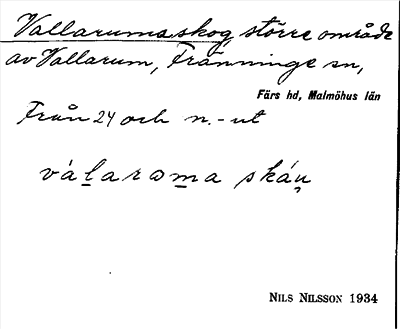 Vallarums skog, större område
av Vallarum, Fränninge sn,
Färs hd, Malmöhus län
Från 24 och n.-ut
váḻarɷm̱a skáṷ
NILS NILSSON 1934